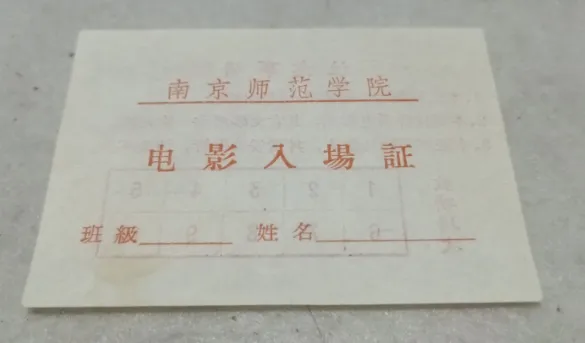 南京师范学院
电影入場証
班級 姓名